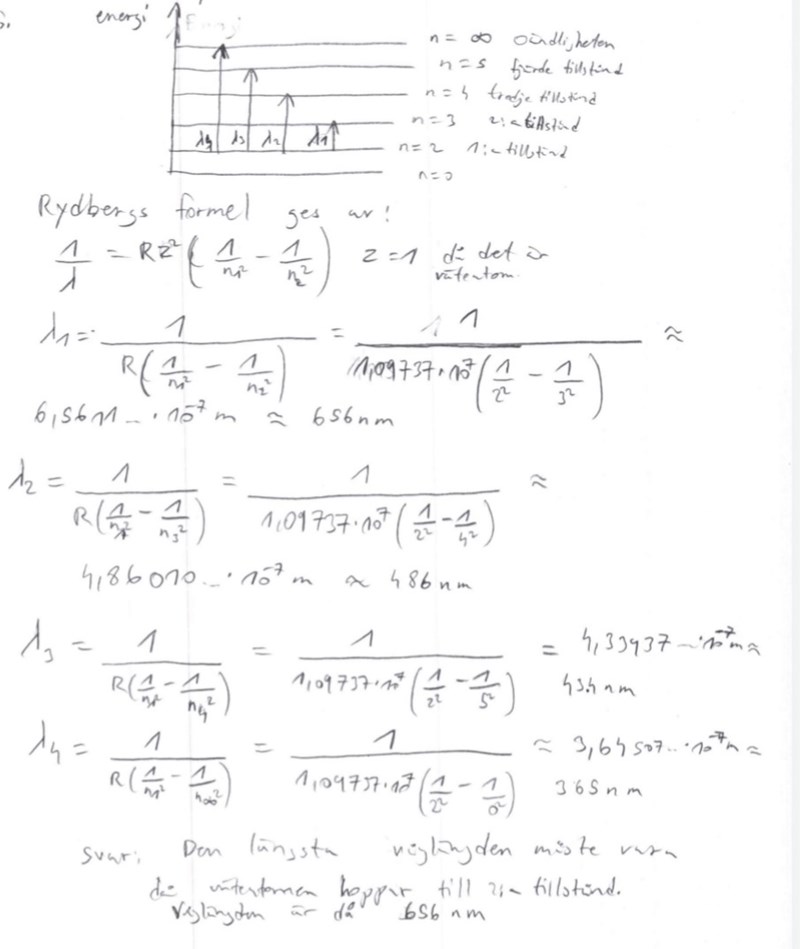 6.
energi
Energi
n = ∞ oändligheten
n = 5 fjärde tillstånd
n = 4 tredje tillstånd
n = 3 2:a tillstånd
n = 2 1:a tillstånd
n = 0
λ4 λ3 λ2 λ1
Rydbergs formel ges av:
1/λ = RZ²(1/n₁² - 1/n₂²) z = 1 då det är
väteatom.
λ₁ = 1/(R(1/n₁² - 1/n₂²)) = 1/(1,09737·10⁷(1/2² - 1/3²)) ≈
6,5611...·10⁻⁷ m ≈ 656 nm
λ₂ = 1/(R(1/n₁² - 1/n₃²)) = 1/(1,09737·10⁷(1/2² - 1/4²)) ≈
4,86010...·10⁻⁷ m ≈ 486 nm
λ₃ = 1/(R(1/n₁² - 1/n₄²)) = 1/(1,09737·10⁷(1/2² - 1/5²)) = 4,33937...·10⁻⁷ m ≈
434 nm
λ₄ = 1/(R(1/n₁² - 1/n∞²)) = 1/(1,09737·10⁷(1/2² - 1/0²)) ≈ 3,64507...·10⁻⁷ m ≈
365 nm
svar: Den längsta våglängden måste vara
då väteatomen hoppar till 2:a tillstånd.
Våglängden är då 656 nm